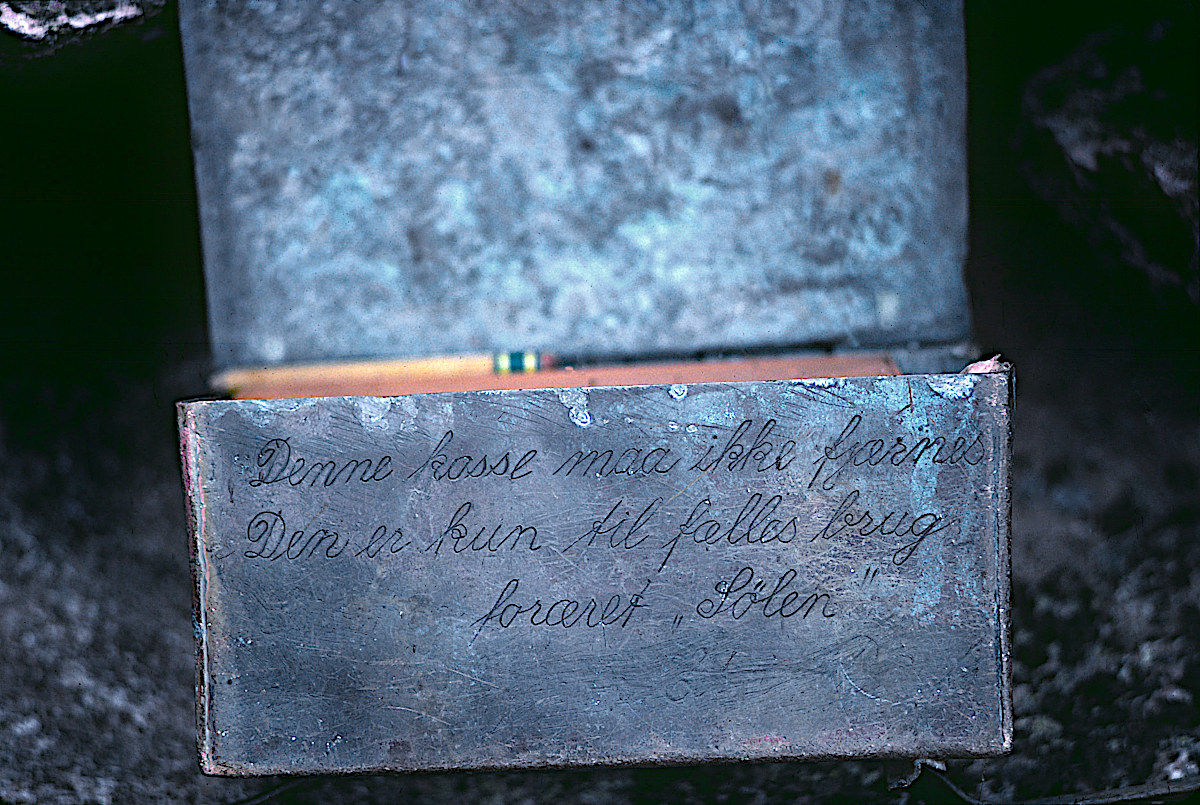 Denne kasse maa ikke fjærnes
Den er kun til fælles brug
foræret „Sølen"